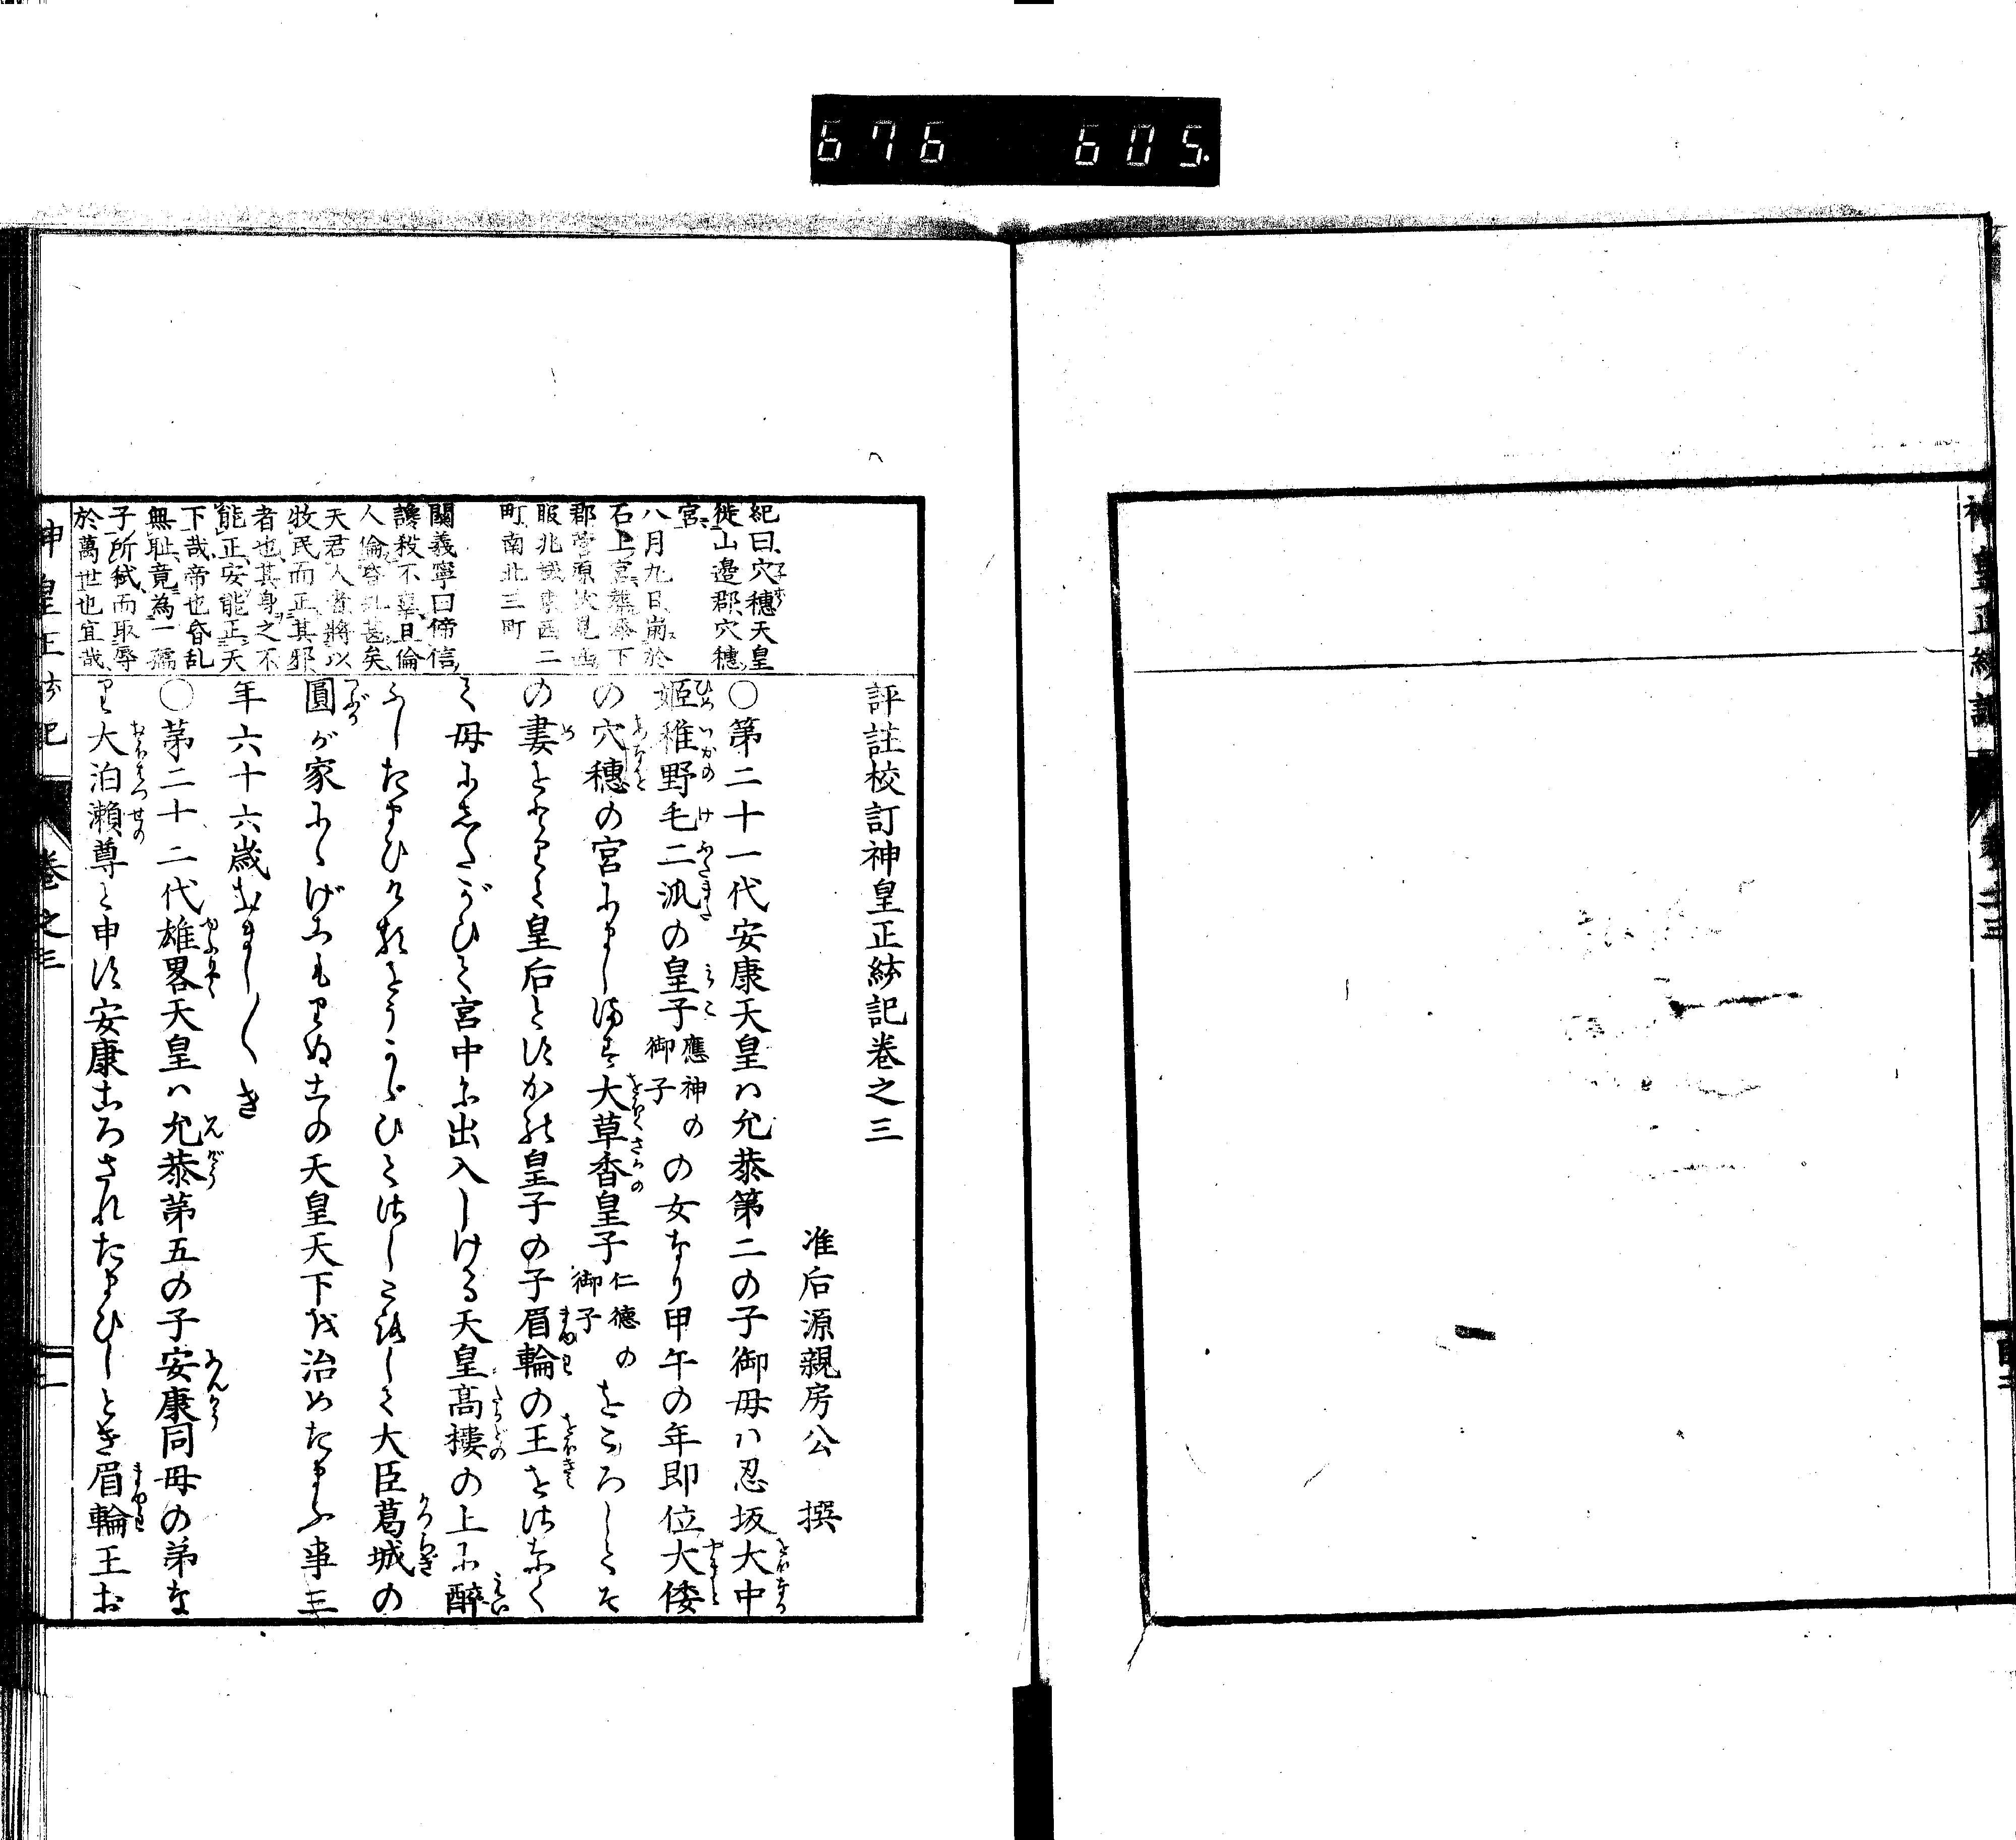 676 605.
評註校訂神皇正統記巻之三
准后源親房公 撰
〇第二十一代安康天皇ハ允恭第二の子御母ハ忍坂大中
姫稚野毛二派の皇子應神の御子の女なり甲午の年即位大倭
の穴穗の宮にまします大草香皇子仁德の御子をころしてそ
の妻をとりて皇后とすかの皇子の子眉輪の王をさなく
て母にしたがひて宮中に出入しける天皇高樓の上に醉
ふしたまひけるをうかゞひてさしころして大臣葛城の
圓が家ににげこもりぬこの天皇天下を治めたまふ事三
年六十六歳おまし〱き
〇第二十二代雄畧天皇ハ允恭第五の子安康同母の弟な
り大泊瀬尊と申す安康ころされたまひしとき眉輪王お
紀曰穴穗天皇
徙山邊郡穴穗
宮
八月九日崩於
石上宮葬添下
郡菅原伏見西
服兆域東西二
町南北三町
關義寧曰帝信
讒殺不辜且倫
人倫昏乱甚矣
天君人者將以
牧民而正其邪
者也其身之不
能正安能正天
下哉帝也昏乱
無恥竟為一孺
子所弑而取辱
於萬世也宜哉
神皇正統記
巻之三
一